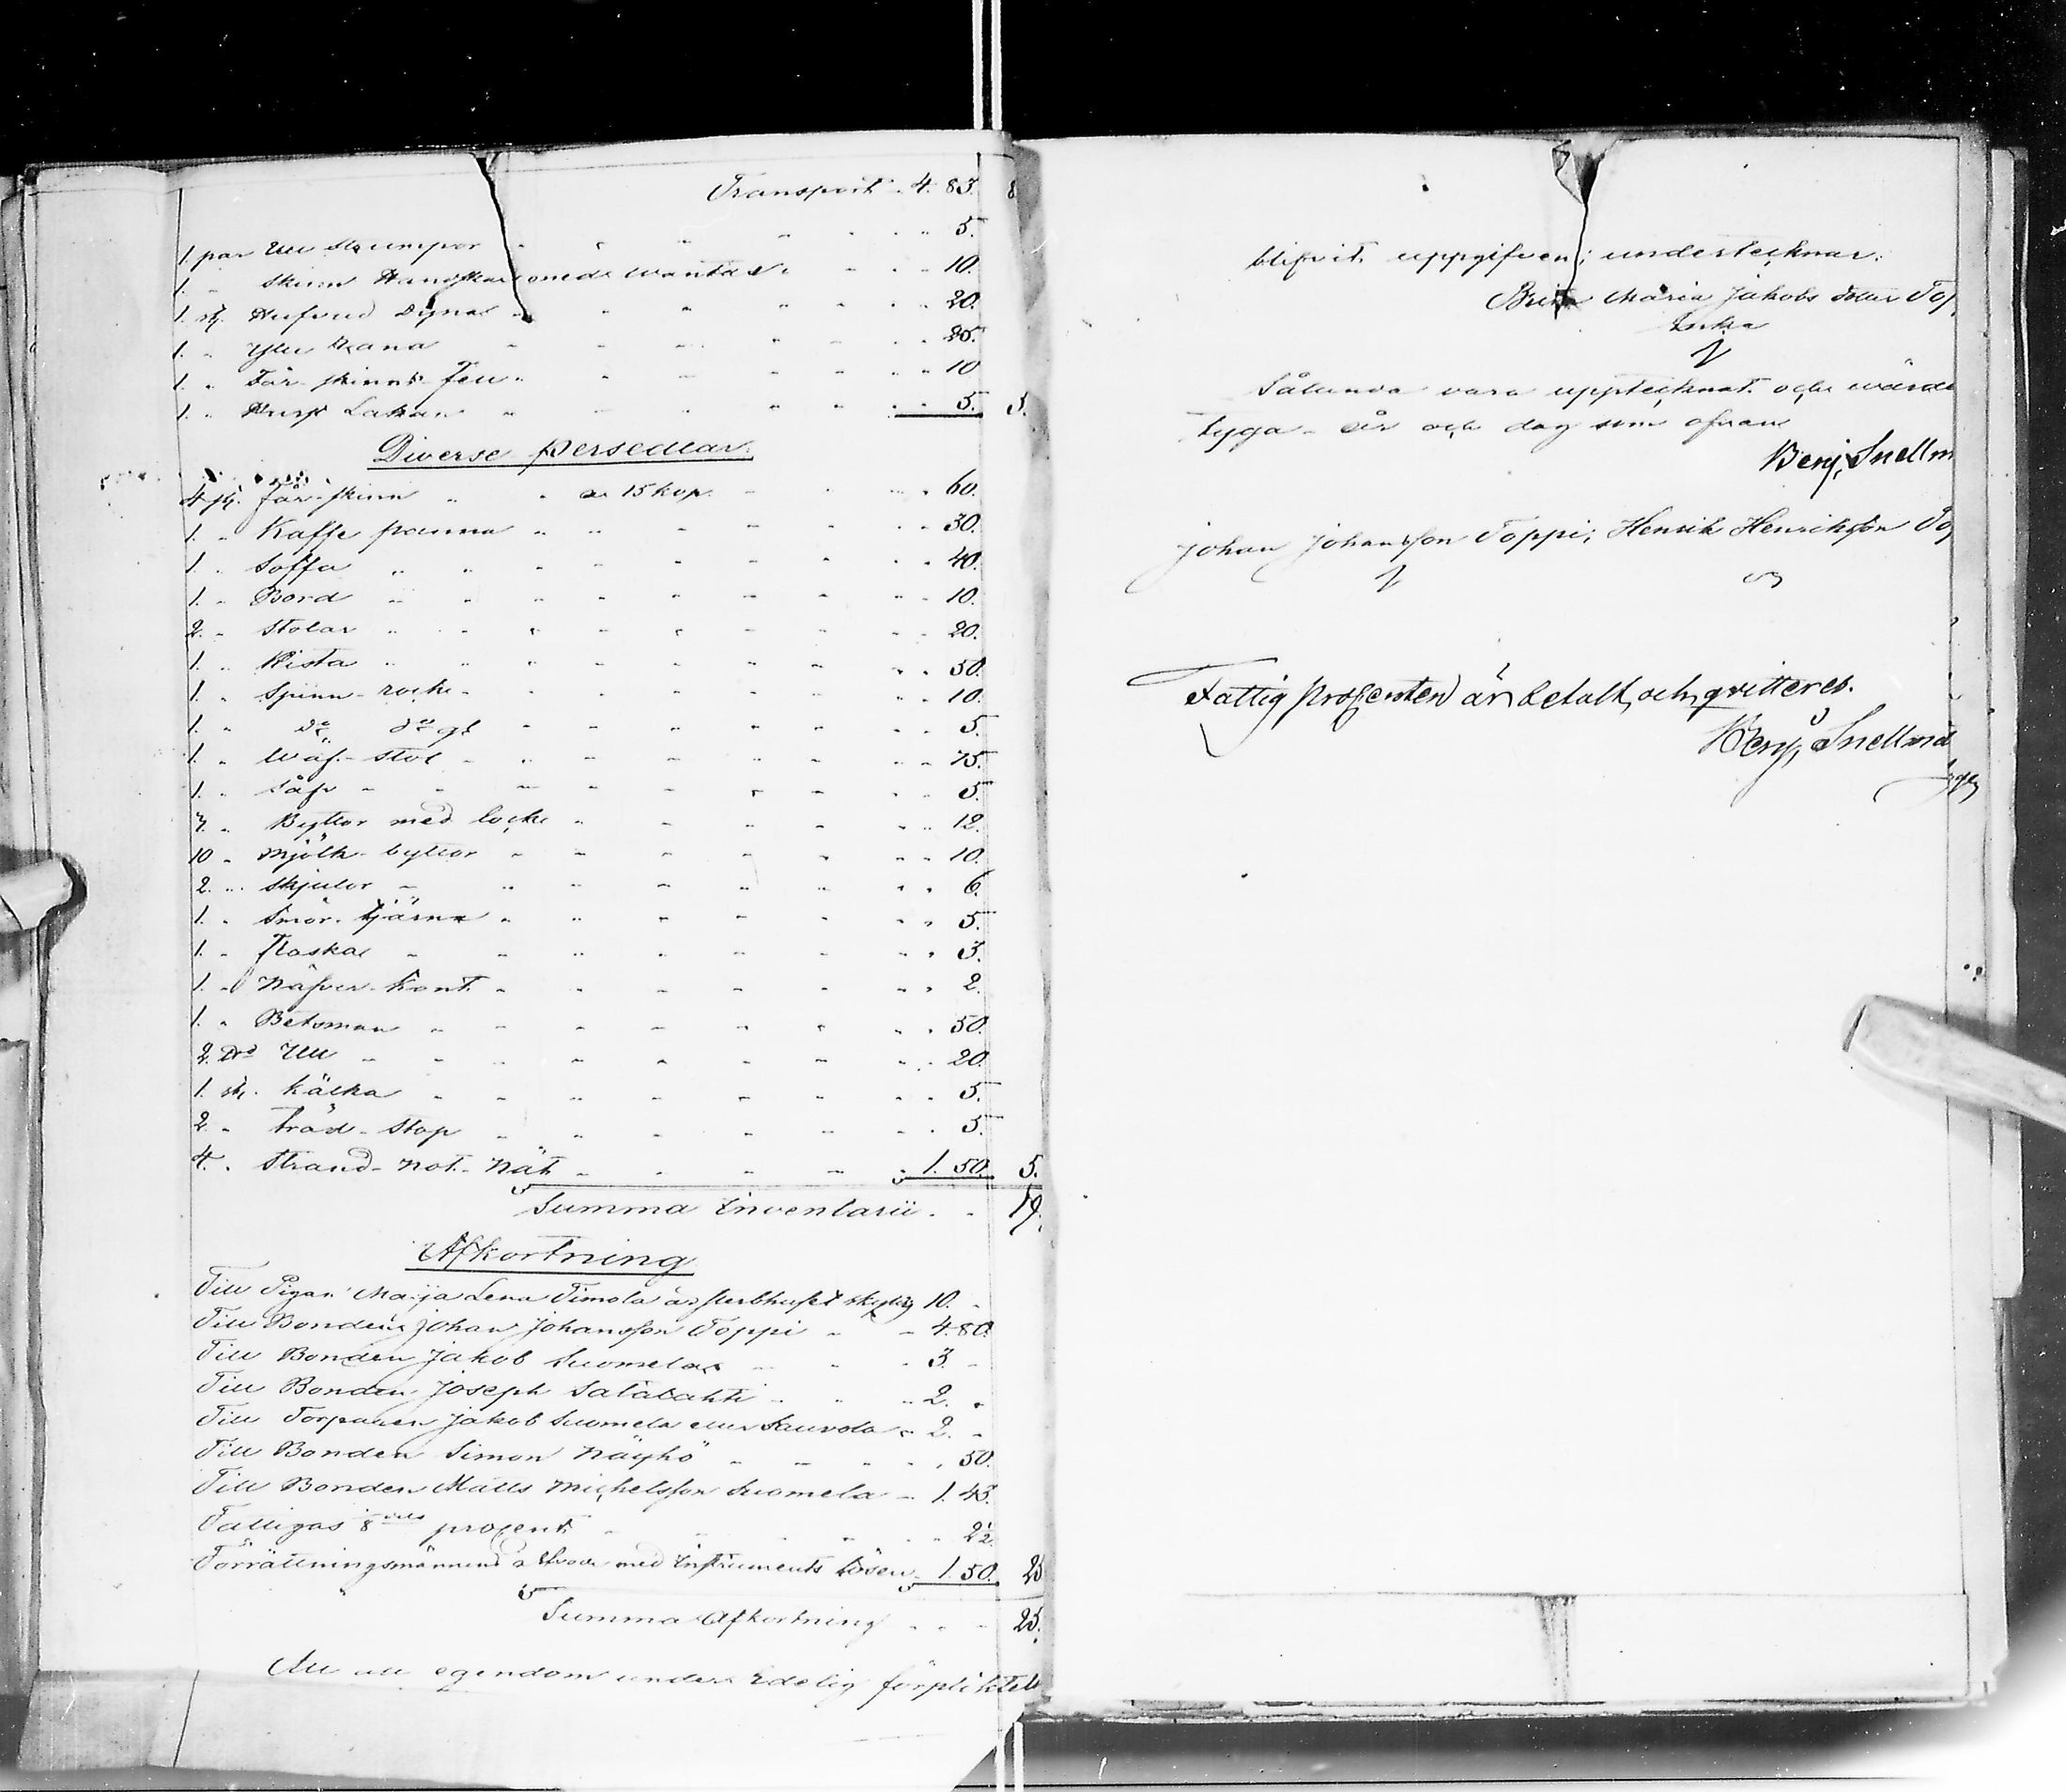 Transport . 4. 83. 8
1. par Ull Strumpor 5.
1. " Skinn Handskar med wantar 10.
1. st. Hufvud Dyna 20.
1. " Ylle 25.
1. " Får-skinns-fell 10
1. " Lakan 5. 5.
Diverse persedlar.
4 st. Får-skinn a 15 kop. 60.
1. " Kaffe panna 30.
1. " Soffa 40.
1. " Bord 10.
2. " Stolar 20.
1. " Kista 50.
1. " Spinn-rock 10.
1. " do do gl 5.
1. " Wäf-stol 75.
1. " Såp 5.
7. " Byttor med lock 12.
10 " Mjölk-byttor 10.
2. " Skjulor 6.
1. " Smör-tjärna 5.
1. " Flaska 3.
1. " Näfver-Kont 2.
1. " Betsman 50.
2. Ull 20.
1. st. Kälka 5.
2. " Träd-Stop 5.
4. " Strand-not-Nät 1. 50. 5.
Summa Inventarii . . 19.
Afkortning
Till Pigan Maija Lena Timola är sterbhuset skyldig 10. -
Till Bonden Johan Johansson Toppi 4. 80.
Till Bonden Jakob Suomela 3. -
Till Bonden Joseph Salalahti 2. -
Till Torparen Jakob Suomela eller Sauvola 2. -
Till Bonden Simon Näyhö 50.
Till Bonden Matts Michelsson Suomela 1. 43.
Fattigas 8 dels procent 2½
Förrättningsmännens Arfvode med Instruments lösen 1. 50. 25
Summa Afkortning . . . 25.
All egendom under Edelig förpliktelse
blifvit uppgifven; undertecknar.
Brita Maria Jakobs doter Top
Enka
Sålunda vara upptecknat och wärde
tyga - år och dag som ofvan
Benj. Snellm
Johan Johansson Toppi; Henrik Henriksson To
Fattig procenten är betalt, och qvitteres.
Benj. Snellmd